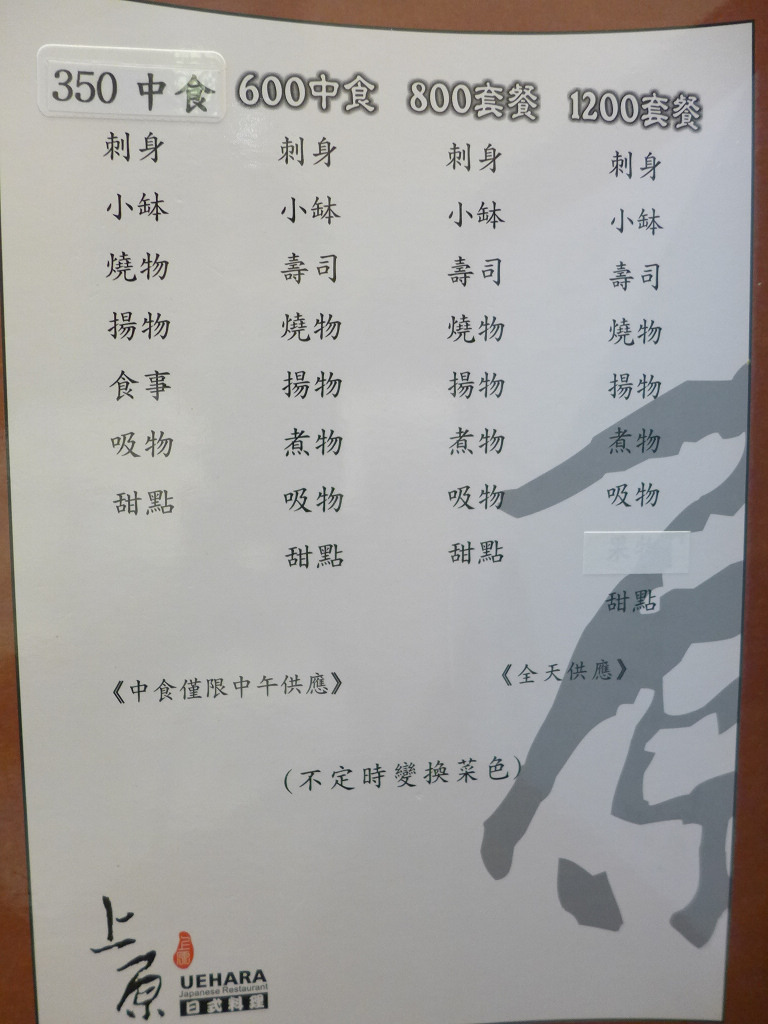 350 中食
刺身
小缽
燒物
揚物
食事
吸物
甜點
600中食
刺身
小缽
壽司
燒物
揚物
煮物
吸物
甜點
800套餐
刺身
小缽
壽司
燒物
揚物
煮物
吸物
甜點
1200套餐
刺身
小缽
壽司
燒物
揚物
煮物
吸物
甜點
《中食僅限中午供應》
《全天供應》
(不定時變換菜色)
上原
上原
UEHARA
Japanese Restaurant
日式料理